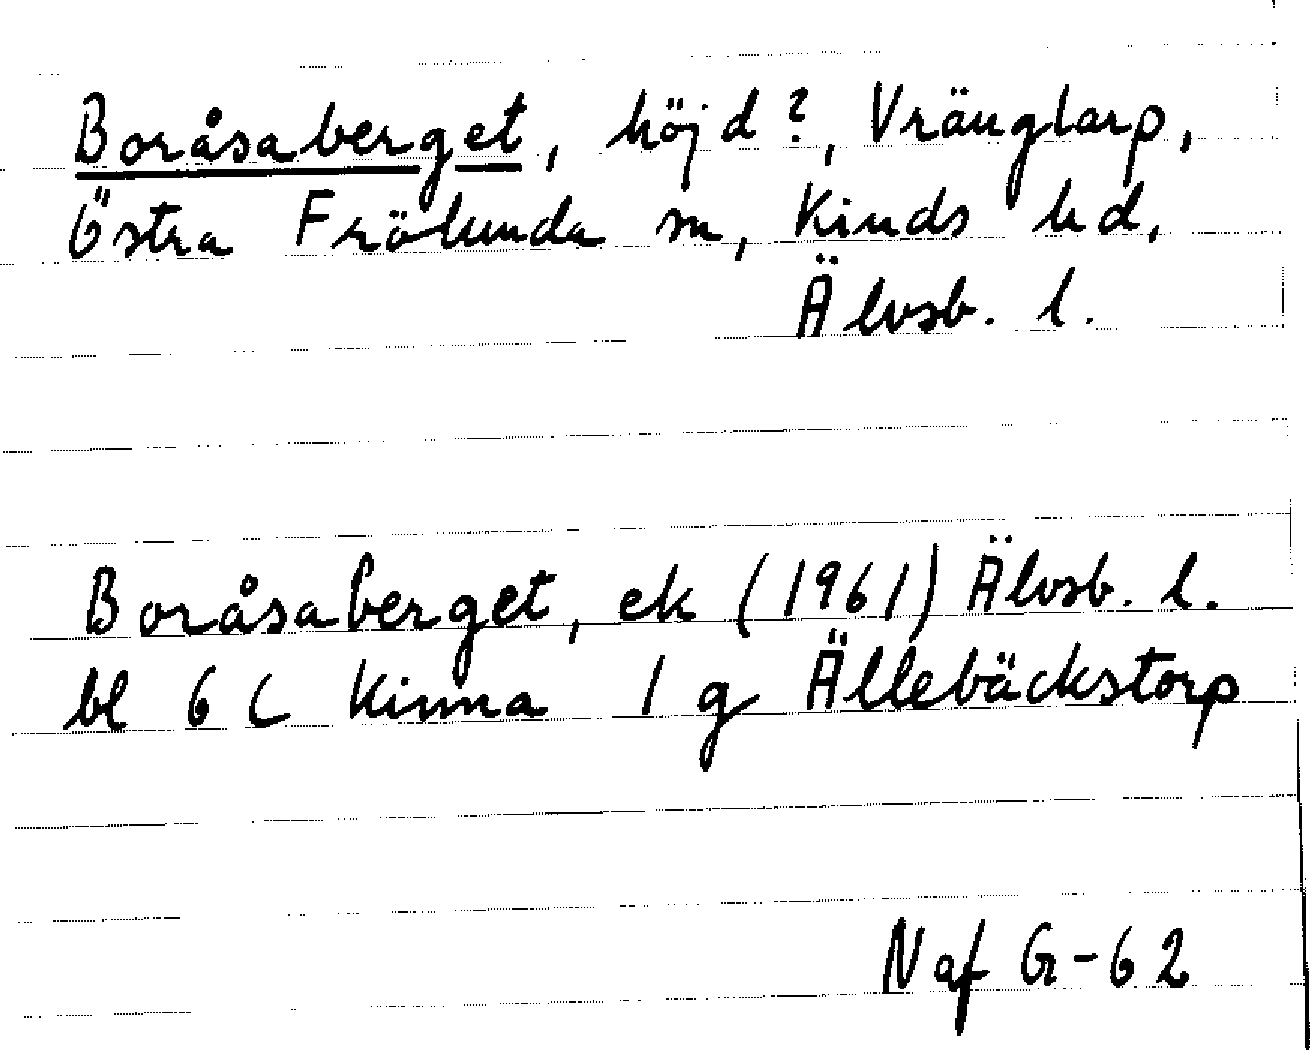 Boråsaberget, höjd?, Vränglarp,
Östra Frölunda sn, Kinds hd,
Älvsb. l.
Boråsaberget, ek (1961) Älvsb. l.
bl 6 C Kinna 1 g Ällebäckstorp
Naf G-62